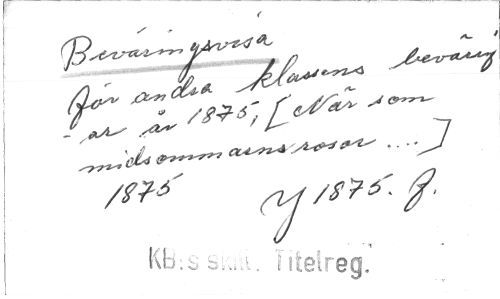 Beväringsvisa
för andra klassens bevärin
- ar år 1875, [När som
midsommarns rosor ....]
1875
Y 1875. 8.
KB:s skill. Titelreg.